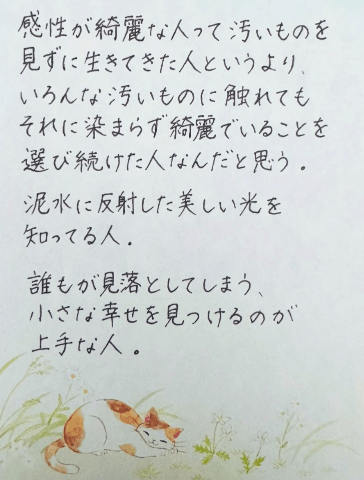 感性が綺麗な人って汚いものを
見ずに生きてきた人というより、
いろんな汚いものに触れても
それに染まらず綺麗でいることを
選び続けた人なんだと思う。
泥水に反射した美しい光を
知ってる人.
誰もが見落としてしまう、
小さな幸せを見つけるのが
上手な人。